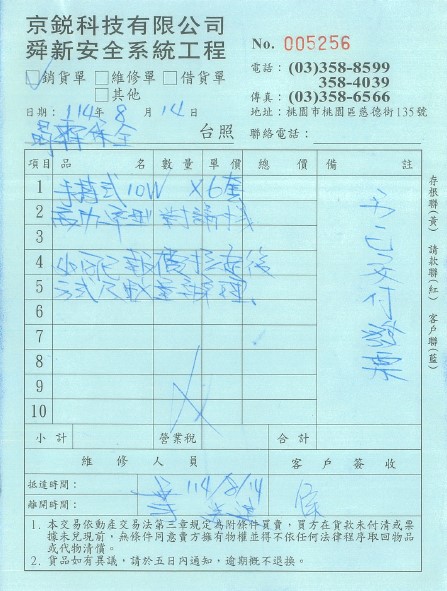 京銳科技有限公司
舜新安全系統工程
No. 005256
☑銷貨單 □維修單 □借貨單
□其他
電話：(03)358-8599
358-4039
傳真：(03)358-6566
日期：114年8月14日
地址：桃園市桃園區慈德街135號
保全 台照 聯絡電話：
項目 品名 數量 單價 總價 備註
1 手持式10W X6套
2 高功率型對講機
3
4 報價
5 方式及數量辦理
6
7
8
9
10
已交付發票
存根聯(黃) 請款聯(紅) 客戶聯(藍)
小計 營業稅 合計
維修人員 客戶簽收
抵達時間： 114/8/14
離開時間：
1. 本交易依動產交易法第三章規定為附條件買賣，買方在貨款未付清或票據未兌現前，無條件同意賣方擁有物權並得不依任何法律程序取回物品或代物清償。
2. 貨品如有異議，請於五日內通知，逾期概不退換。